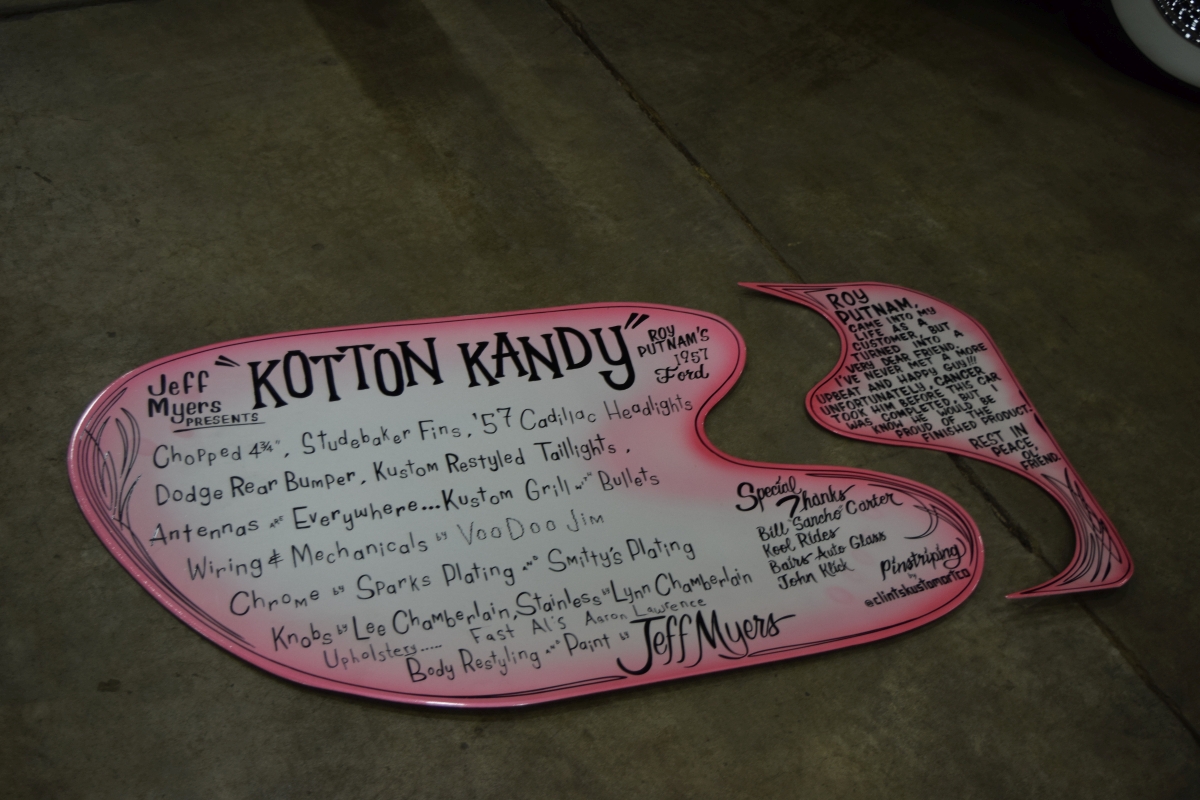 Jeff
Myers
PRESENTS
"KOTTON KANDY"
ROY
PUTNAM'S
1957
Ford
Chopped 4¾", Studebaker Fins, '57 Cadillac Headlights
Dodge Rear Bumper, Kustom Restyled Taillights,
Antennas ARE Everywhere...Kustom Grill with Bullets
Wiring & Mechanicals by VooDoo Jim
Chrome by Sparks Plating and Smitty's Plating
Knobs by Lee Chamberlain, Stainless by Lynn Chamberlain
Upholstery..... Fast Al's Aaron Lawrence
Body Restyling and Paint by Jeff Myers
Special
Thanks
Bill "Sancho" Carter
Kool Rides
Bairs Auto Glass
John Klick
Pinstriping
by
@clintskustomartco
ROY
PUTNAM,
CAME INTO MY
LIFE AS A
CUSTOMER, BUT
TURNED INTO A
VERY DEAR FRIEND.
I'VE NEVER MET A MORE
UPBEAT AND HAPPY GUY!!!
UNFORTUNATELY, CANCER
TOOK HIM BEFORE THIS CAR
WAS COMPLETED, BUT I
KNOW HE WOULD BE
PROUD OF THE
FINISHED PRODUCT.
REST IN
PEACE
OL'
FRIEND.